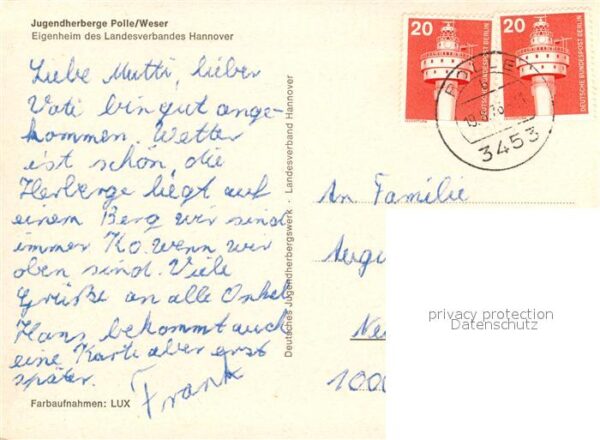 Jugendherberge Polle/Weser
Eigenheim des Landesverbandes Hannover
Liebe Mutti, lieber
Vati bin gut ange-
kommen. Wetter
ist schön, die
Herberge liegt auf
einem Berg wir sind
immer K.o. wenn wir
oben sind. Viele
Grüße an alle Onkel
Hans bekommt auch
eine Karte aber erst
später.
Frank
Farbaufnahmen: LUX
Deutsches Jugendherbergswerk · Landesverband Hannover
20
DEUTSCHE BUNDESPOST BERLIN
20
DEUTSCHE BUNDESPOST BERLIN
POLLE
3453
An Familie
privacy protection
Datenschutz
1000